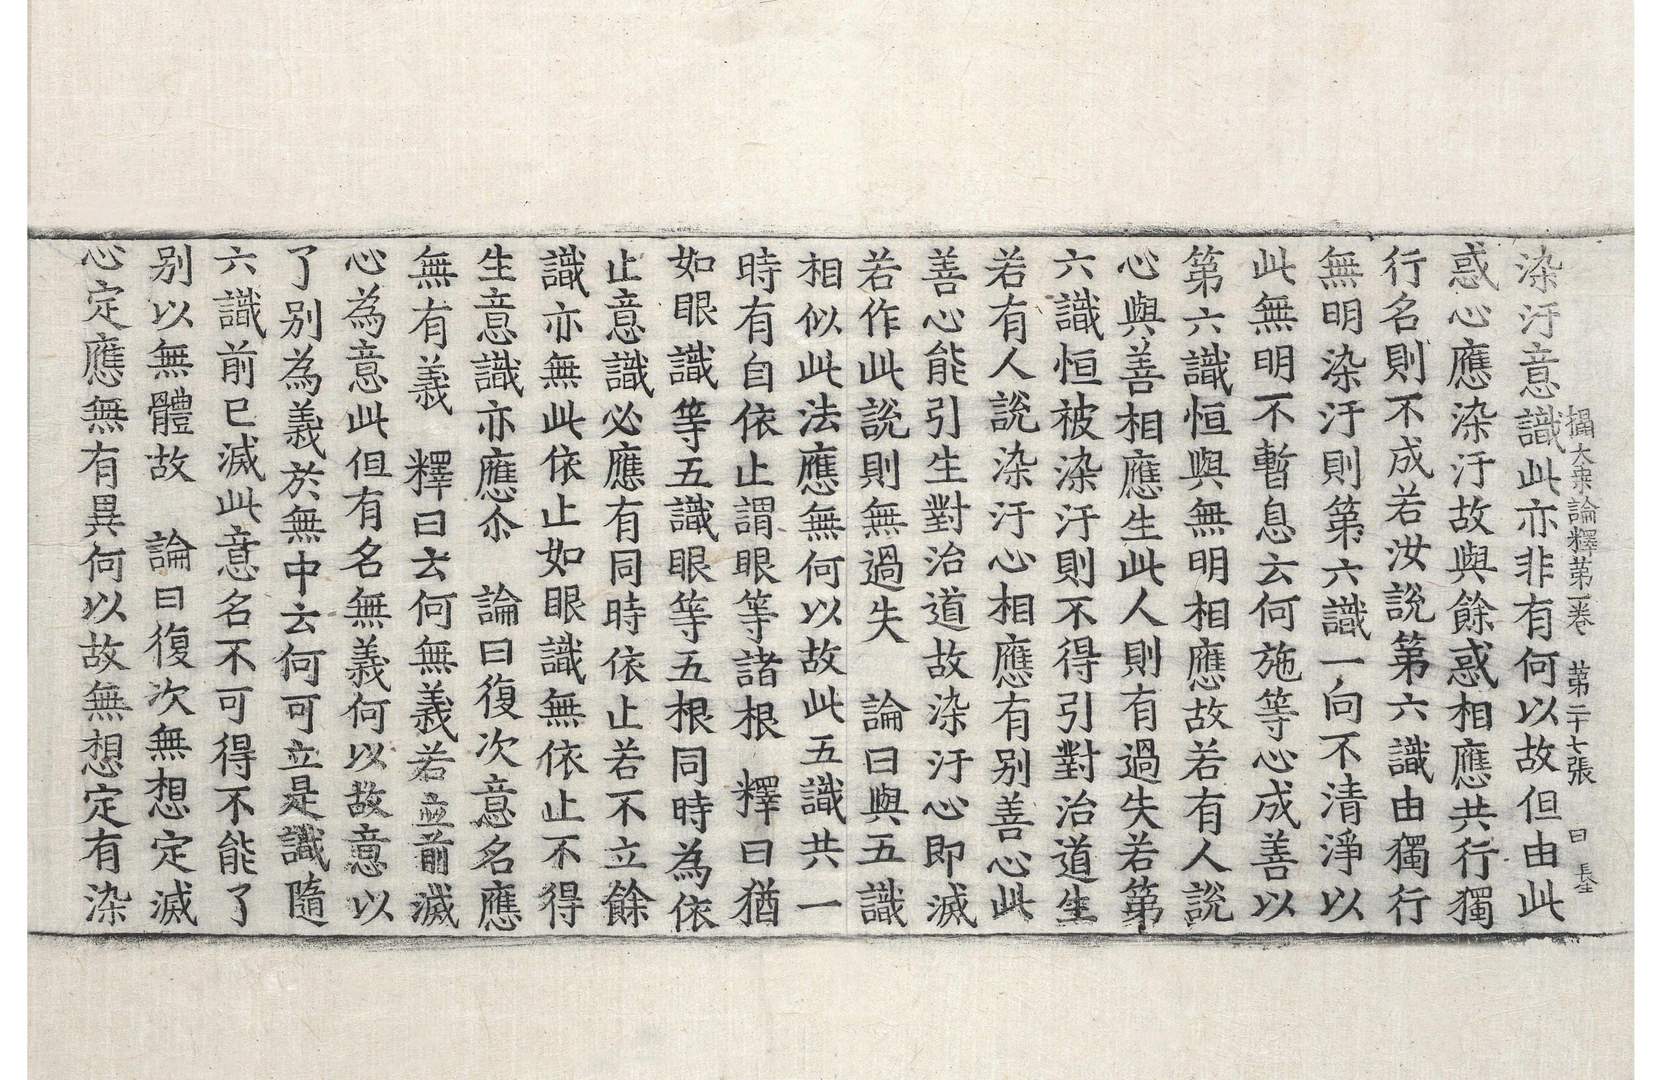 攝大乘論釋第一卷 第二十七張 曰
染汙意識此亦非有何以故但由此
惑心應染汙故與餘惑相應共行獨
行名則不成若汝說第六識由獨行
無明染汙則第六識一向不清淨以
此無明不暫息云何施等心成善以
第六識恒與無明相應故若有人說
心與善相應生此人則有過失若第
六識恒被染汙則不得引對治道生
若有人說染汙心相應有別善心此
善心能引生對治道故染汙心即滅
若作此說則無過失 論曰與五識
相似此法應無何以故此五識共一
時有自依止謂眼等諸根 釋曰猶
如眼識等五識眼等五根同時為依
止意識必應有同時依止若不立餘
識亦無此依止如眼識無依止不得
生意識亦應尒 論曰復次意名應
無有義 釋曰云何無義若立前滅
心為意此但有名無義何以故意以
了別為義於無中云何可立是識隨
六識前已滅此意名不可得不能了
別以無體故 論曰復次無想定滅
心定應無有異何以故無想定有染